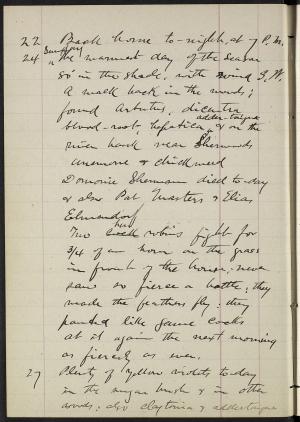 22 Back home to-night, at 7 P.M.
24 Sunday, the warmest day of the season
80 in the shade, with wind S.W.
A walk back in the woods;
found Arbutus, dicentra
blood-root, hepatica, adder-tongue & on the
river bank near Shermans
anemone & chickweed
Dominie Shermann died to-day
& also Pat Masters & Elias
Elmendorf
Two cock robins fight for
3/4 of an hour on the grass
in front of the house; never
saw so fierce a battle; they
made the feathers fly; they
panted like game cocks
at it again the next morning
as fiercely as ever.
27 Plenty of yellow violets to-day
in the sugar bush & in other
woods; also claytonia & adder-tongue